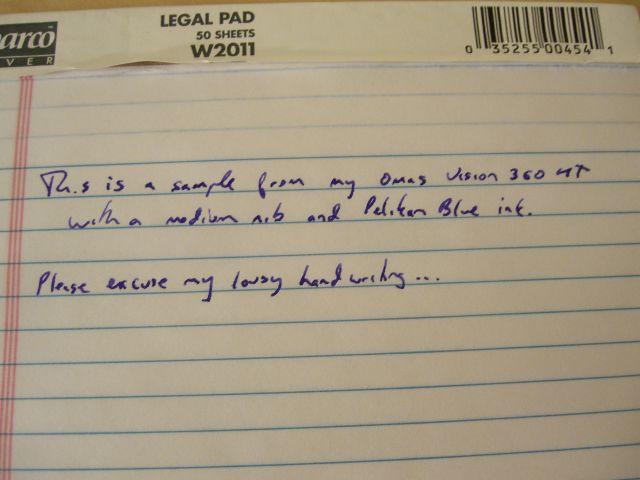 arco
VER
LEGAL PAD
50 SHEETS
W2011
0 35255 00454 1
This is a sample from my Omas Vision 360 HT
with a medium nib and Pelikan Blue ink.
Please excuse my lousy handwriting...